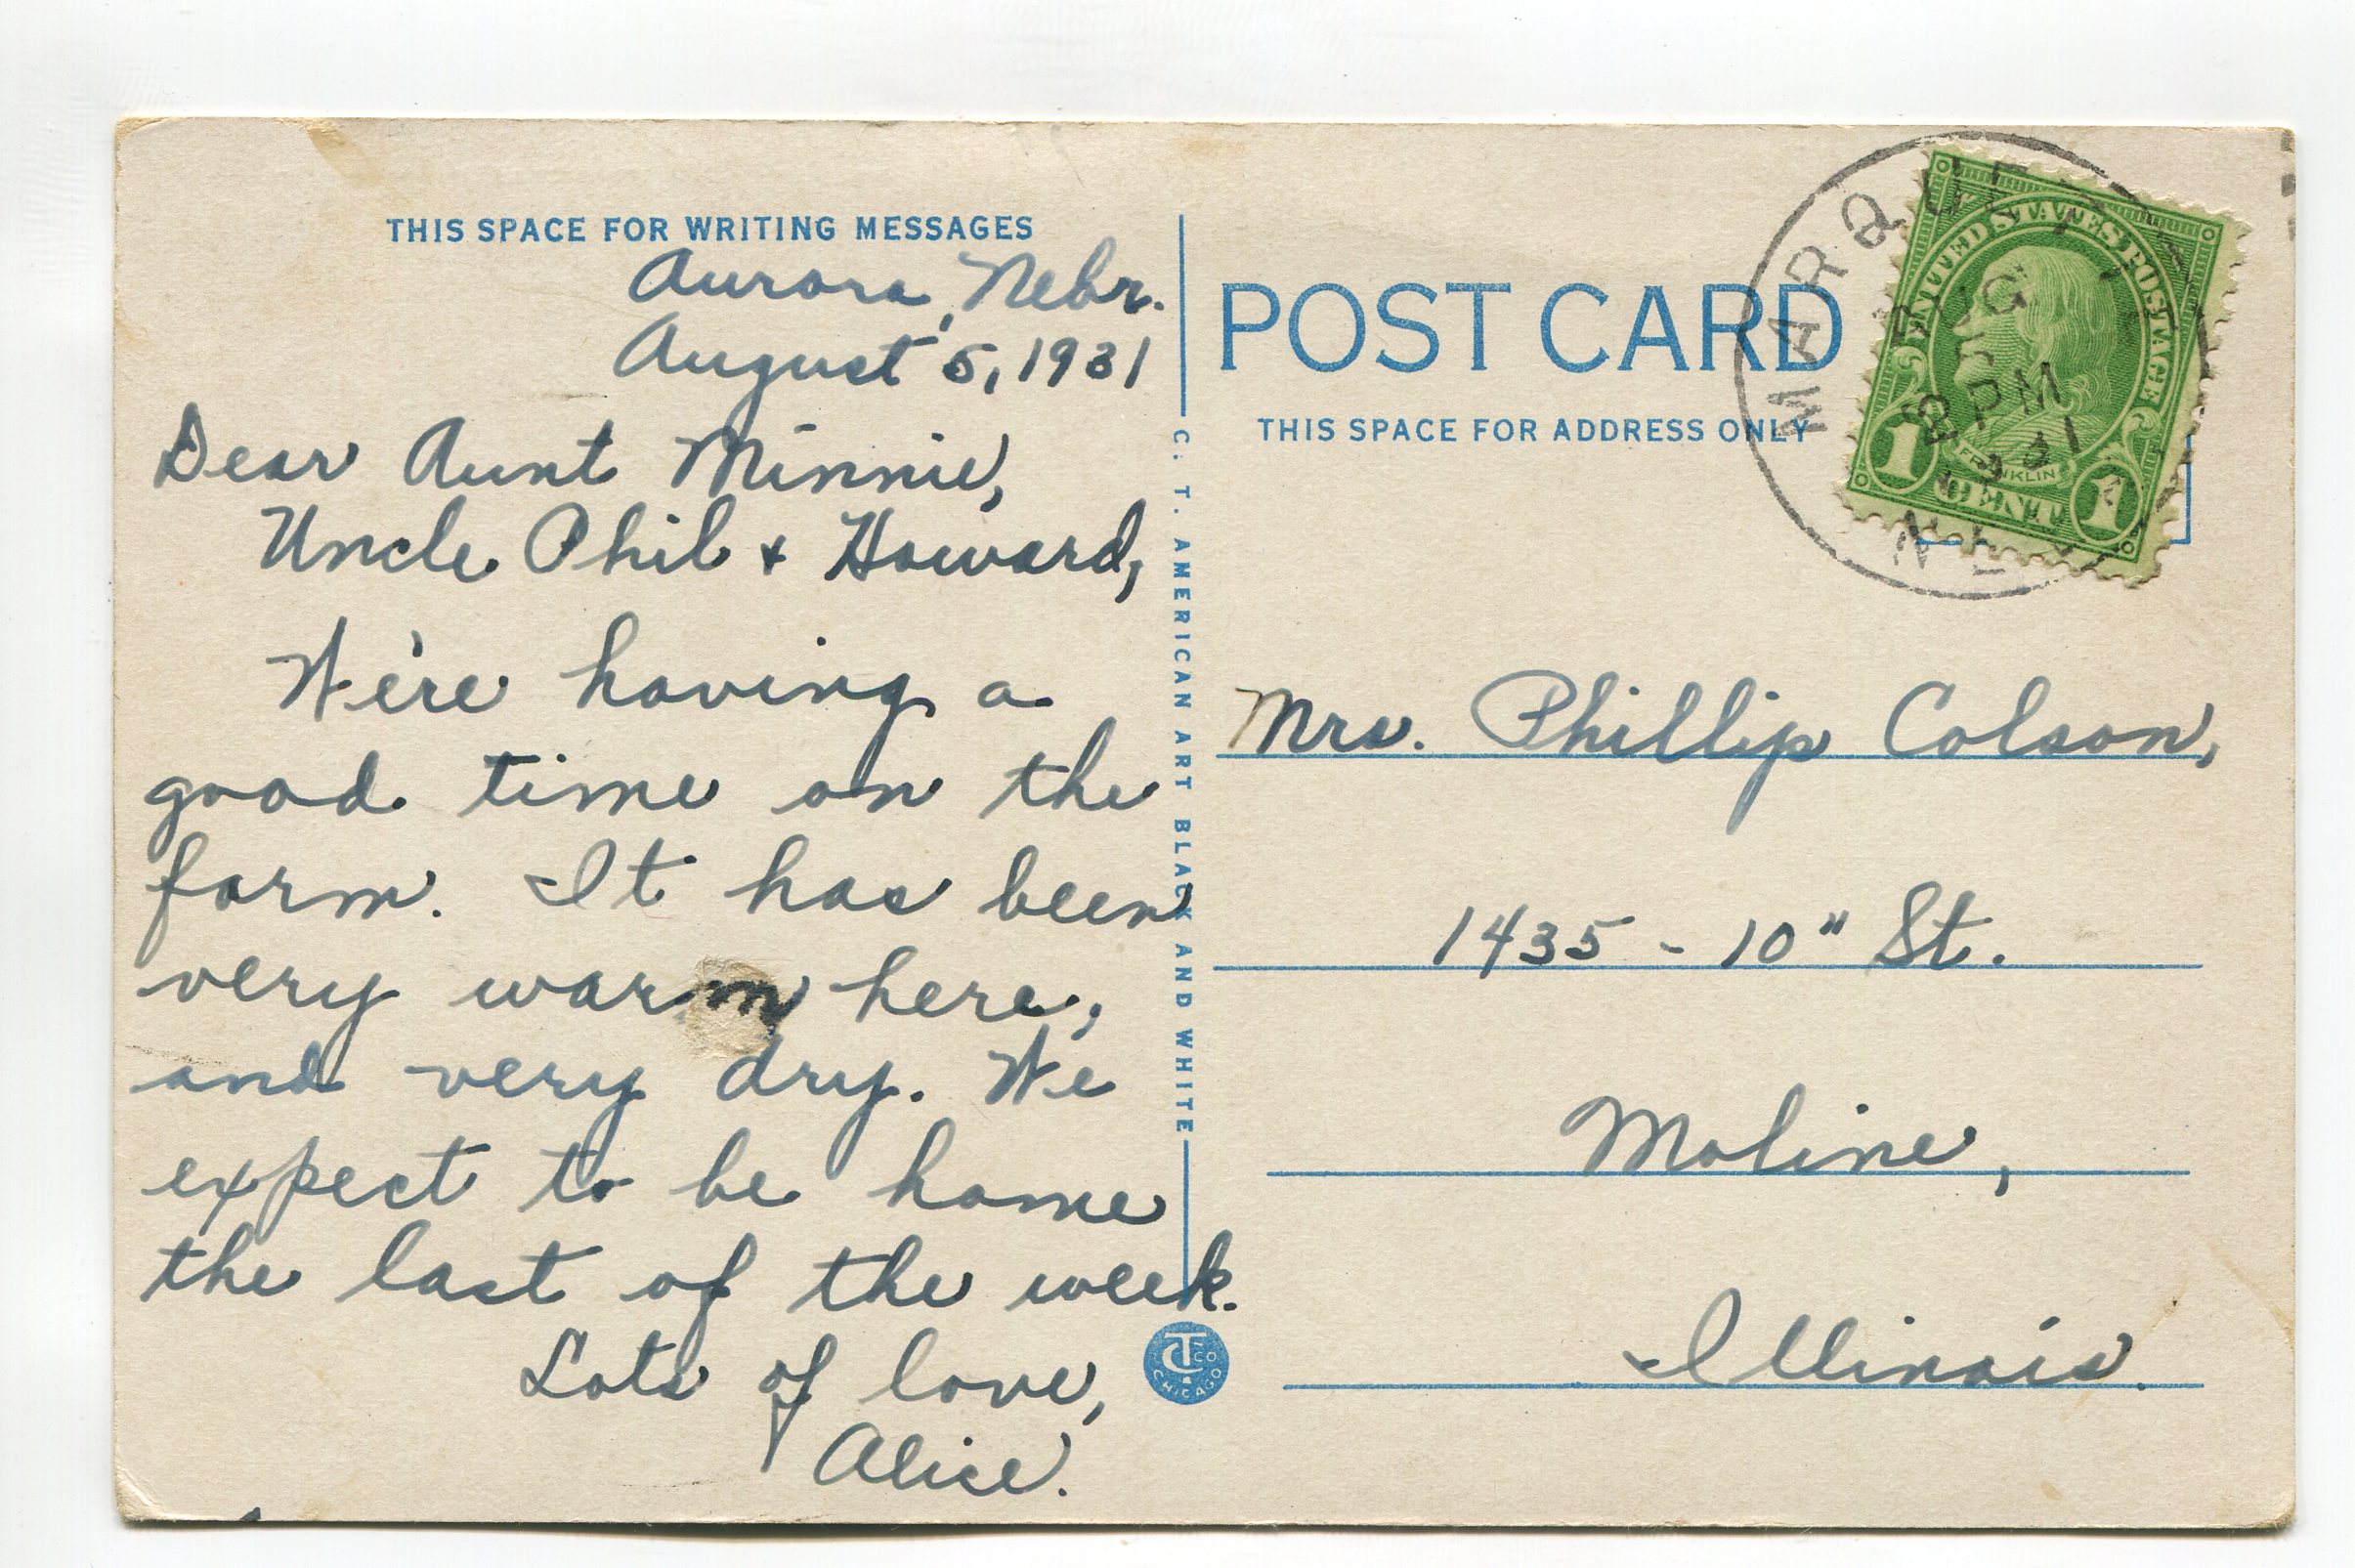 THIS SPACE FOR WRITING MESSAGES
Aurora, Nebr.
August 5, 1931
Dear Aunt Minnie,
Uncle Phil + Howard,
We're having a
good time on the
farm. It has been
very warm here,
and very dry. We
expect to be home
the last of the week.
Lots of love,
Alice.
C. T. AMERICAN ART BLACK AND WHITE
CHICAGO
POST CARD
THIS SPACE FOR ADDRESS ONLY
UNITED STATES POSTAGE
FRANKLIN
1 CENT 1
PM
Mrs. Phillip Colson,
1435 - 10" St.
Moline,
Illinois.